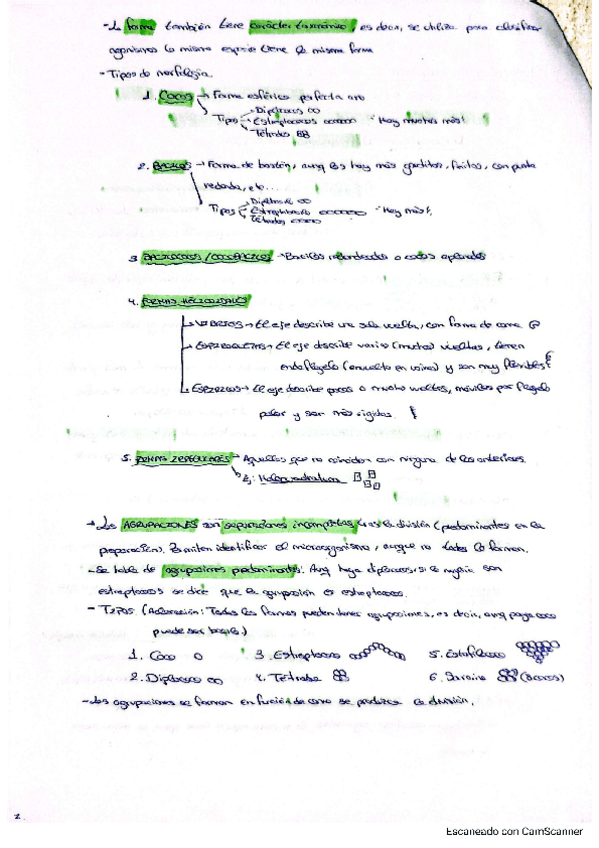 - La forma también tiene carácter taxonómico, es decir, se utiliza para clasificar
organismos la misma especie tiene la misma forma
- Tipos de morfología
1. Cocos → Forma esférica perfecta
Tipos
Diplococos
Estreptococos
Tétrodas
Hay muchos más!
2. Bacilos → Forma de bastón, aunq los hay más gorditos, finitos, con punta
redonda, etc...
Tipos
Hay más!
3 BACTOCOCOS / COCOBACILOS → Bacilos redondeados o cocos aplanados
4. FORMAS HELICOIDALES
VIBRIOS → El eje describe una sola vuelta, con forma de coma
ESPIROQUETAS → El eje describe varias (muchas) vueltas, tienen
endoflagelo (envuelto en vaina) y son muy flexibles
ESPIRILOS → El eje describe pocas o muchas vueltas, móviles por flagelo
polar y son más rígidos.
5. FORMAS IRREGULARES → Aquellas que no coinciden con ninguna de las anteriores.
Ej: Haloquadratum
→ Las AGRUPACIONES son separaciones incompletas tras la división (predominantes en la
preparación). Permiten identificar el microorganismo, aunque no todos la forman.
- Se habla de agrupaciones predominantes. Aunq haya diplococos si la mayoría son
estreptococos se dice que la agrupación es estreptococos.
- TIPOS (Aclaración: Todas las formas pueden tener agrupaciones, es decir, aunq ponga coco
puede ser bacilo.)
1. Coco 3. Estreptococo 5. Estafilococo
2. Diplococo 4. Tétrada 6. Sarcina
- Las agrupaciones se forman en función de como se produce la división.
2.
Escaneado con CamScanner